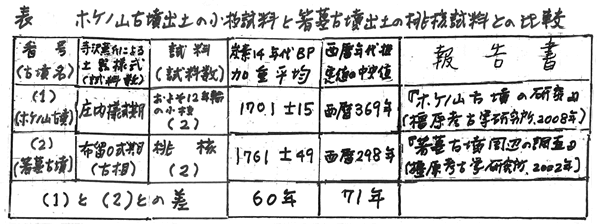 表 ホケノ山古墳出土の小枝試料と箸墓古墳出土の桃核試料との比較
番号
(古墳名)
寺沢薫氏による
土器様式
(試料数)
試料
(試料数)
炭素14年代BP
加重平均
西暦年代推
定値の中央値
報告書
(1)
(ホケノ山古墳)
庄内様式期
およそ12年輪
の小枝
(2)
1701±15
西暦369年
『ホケノ山古墳の研究』
(橿原考古学研究所、2008年)
(2)
(箸墓古墳)
布留0式期
(古相)
桃核
(2)
1761±49
西暦298年
『箸墓古墳周辺の調査』
(橿原考古学研究所、2002年)
(1)と(2)との差
60年
71年